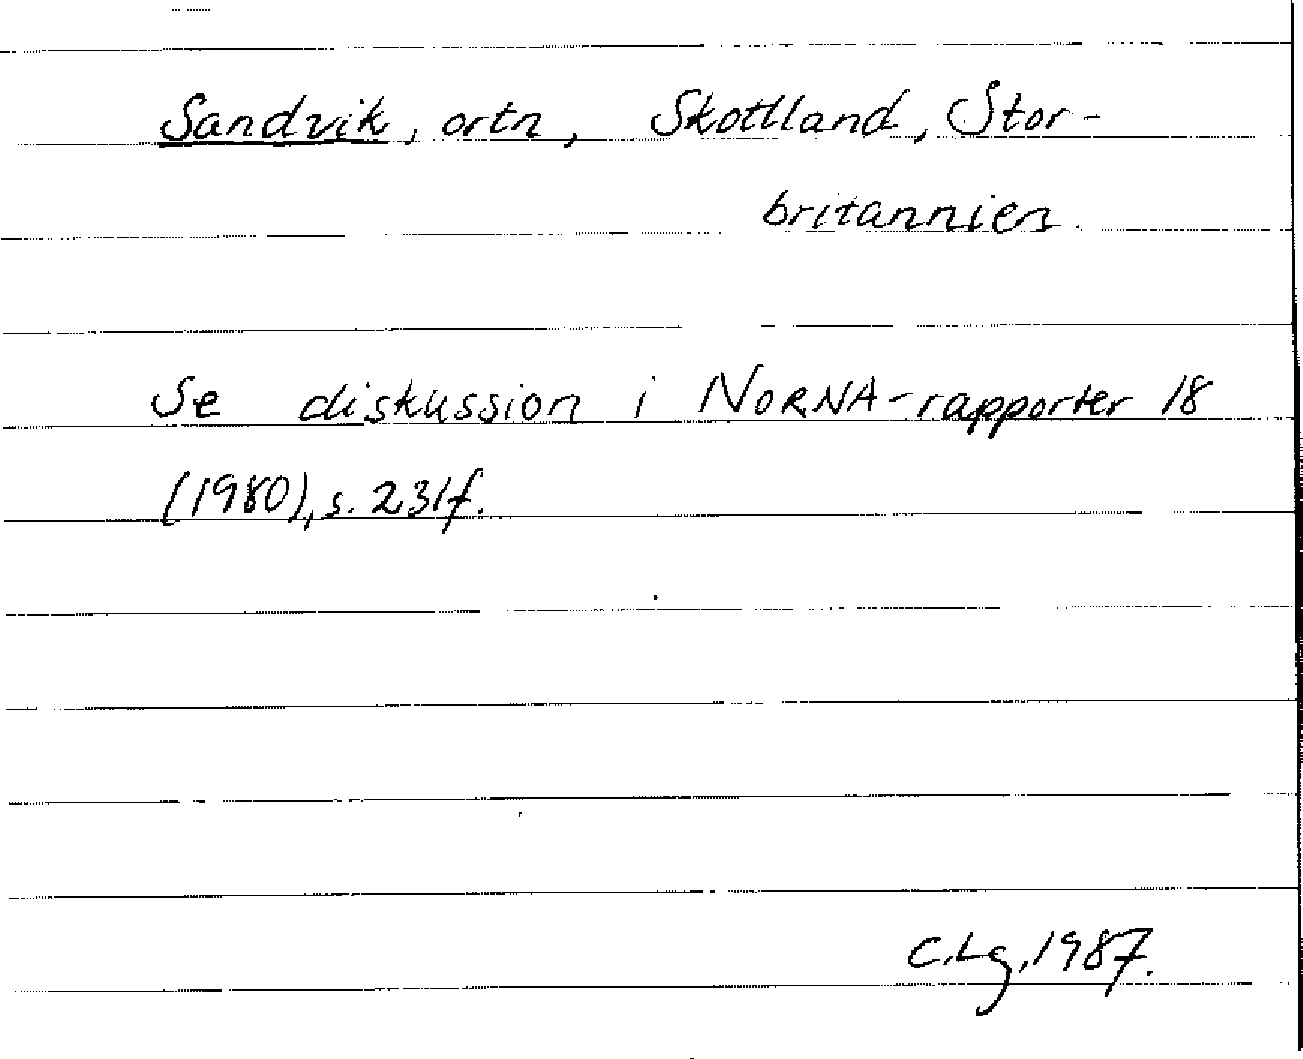 Sandvik, ortn, Skottland, Stor-
britannien.
Se diskussion i NORNA-rapporter 18
(1980), s. 231f.
C.Lg, 1987.